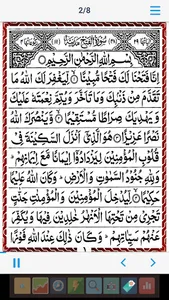 2/8
سُوْرَةُ الْفَتْحِ مَدَنِيَّةٌ
بِسْمِ اللّٰهِ الرَّحْمٰنِ الرَّحِيْمِ
اِنَّا فَتَحْنَا لَكَ فَتْحًا مُّبِيْنًا لِّيَغْفِرَ لَكَ اللّٰهُ مَا
تَقَدَّمَ مِنْ ذَنْۢبِكَ وَمَا تَاَخَّرَ وَيُتِمَّ نِعْمَتَهٗ عَلَيْكَ
وَيَهْدِيَكَ صِرَاطًا مُّسْتَقِيْمًا وَّيَنْصُرَكَ اللّٰهُ
نَصْرًا عَزِيْزًا هُوَ الَّذِيْٓ اَنْزَلَ السَّكِيْنَةَ فِيْ
قُلُوْبِ الْمُؤْمِنِيْنَ لِيَزْدَادُوْٓا اِيْمَانًا مَّعَ اِيْمَانِهِمْ
وَلِلّٰهِ جُنُوْدُ السَّمٰوٰتِ وَالْاَرْضِ وَكَانَ اللّٰهُ عَلِيْمًا
حَكِيْمًا لِّيُدْخِلَ الْمُؤْمِنِيْنَ وَالْمُؤْمِنٰتِ جَنّٰتٍ
تَجْرِيْ مِنْ تَحْتِهَا الْاَنْهٰرُ خٰلِدِيْنَ فِيْهَا وَيُكَفِّرَ
عَنْهُمْ سَيِّاٰتِهِمْ وَكَانَ ذٰلِكَ عِنْدَ اللّٰهِ فَوْزًا